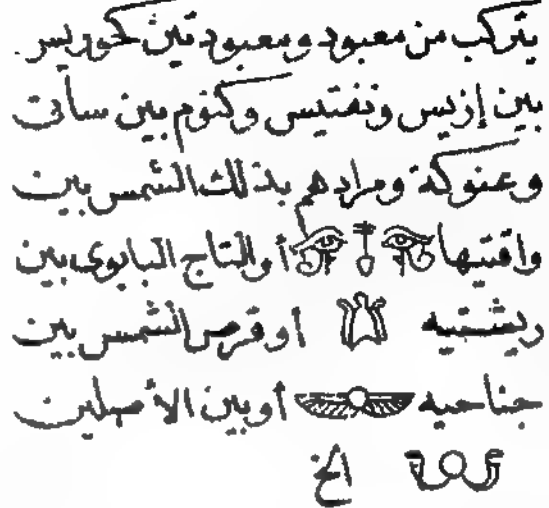 يتركب من معبود ومعبودتين كحوريس
بين إزيس ونفتيس وكنوم بين ساتت
وعنوكة ومرادهم بذلك الشمس بين
واقتيها أو التاج البابوى بين
ريشتيه أو قرص الشمس بين
جناحيه أو بين الأصلين
الخ